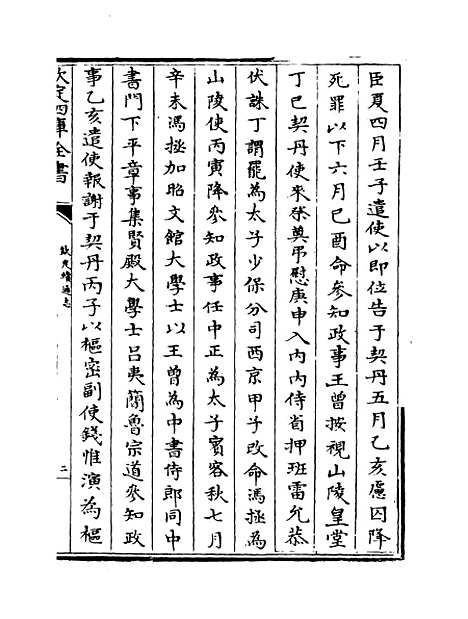 臣夏四月壬子遣使以即位告于契丹五月乙亥慮囚降
死罪以下六月己酉命參知政事王曾按視山陵皇堂
丁巳契丹使來祭奠弔慰庚申入内内侍省押班雷允恭
伏誅丁謂罷為太子少保分司西京甲子改命馮拯為
山陵使丙寅降參知政事任中正為太子賓客秋七月
辛未馮拯加昭文館大學士以王曾為中書侍郎同中
書門下平章事集賢殿大學士吕夷簡魯宗道參知政
事乙亥遣使報謝于契丹丙子以樞密副使錢惟演為樞
欽定四庫全書
欽定續通志
二